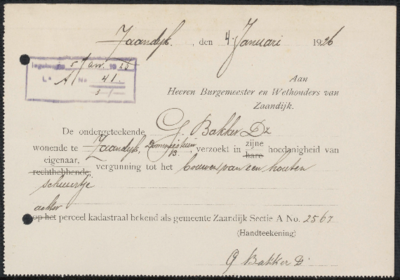 Zaandijk, den 4 Januari 1926
Ingekomen 5 Jan. 1926
La A No 41
Aan
Heeren Burgemeester en Wethouders van
Zaandijk.
De ondergeteekende G. Bakker Dz
wonende te Zaandijk, verzoekt in zijne hoedanigheid van
hare
eigenaar, vergunning tot het bouwen van een houten
rechthebbende,
schuurtje
achter
op het perceel kadastraal bekend als gemeente Zaandijk Sectie A No. 2567.
(Handteekening)
G Bakker Dz